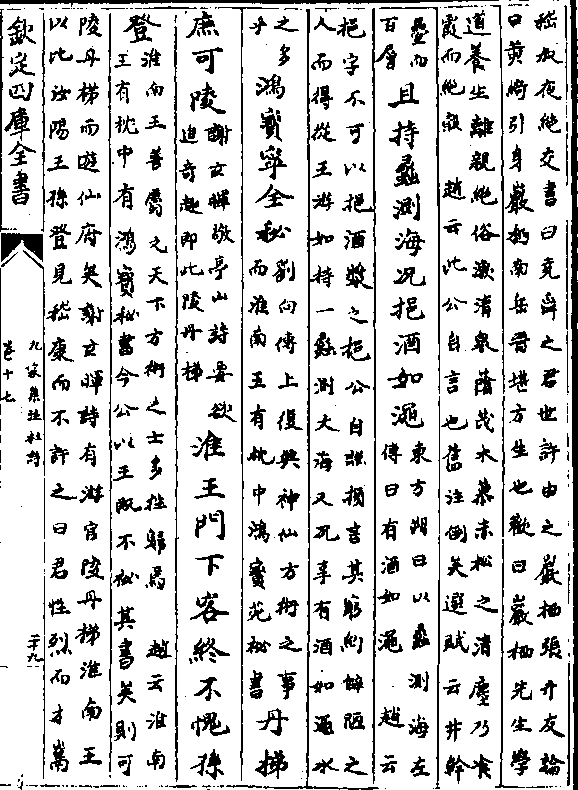 嵇叔夜絶交書曰堯舜之君世許由之巖栖張升友論
曰黄綺引身巖栖南岳晉堪方生也歎曰巖栖先生學
道養生離親絶俗漱清泉蔭茂木慕赤松之清塵乃飡
霞而絶穀 趙云此公自言也舊注倒矣選賦云井幹
疊而
百層
且持蠡測海况挹酒如澠
東方朔曰以蠡測海左
傳曰有酒如澠 趙云
挹字不可以挹酒漿之挹公自謙損言其窮約僻陋之
人而得從王游如持一蠡測大海又況享有酒如澠水
之多
乎
鴻寳寧全秘
劉向傳上復興神仙方術之事
而淮南王有枕中鴻寳苑祕書
丹梯
庶可陵
謝玄暉敬亭山詩要欲
追奇趣即此陵丹梯
淮王門下客終不愧孫
登
淮南王善屬文天下方術之士多往歸焉 趙云淮南
王有枕中有鴻寳秘書今公以王既不秘其書矣則可
陵丹梯而遊仙府矣謝玄暉詩有游宦陵丹梯淮南王
以比汝陽王孫登見嵇康而不許之曰君性烈而才嶲
欽定四庫全書
九家集注杜詩
卷十七
二十九